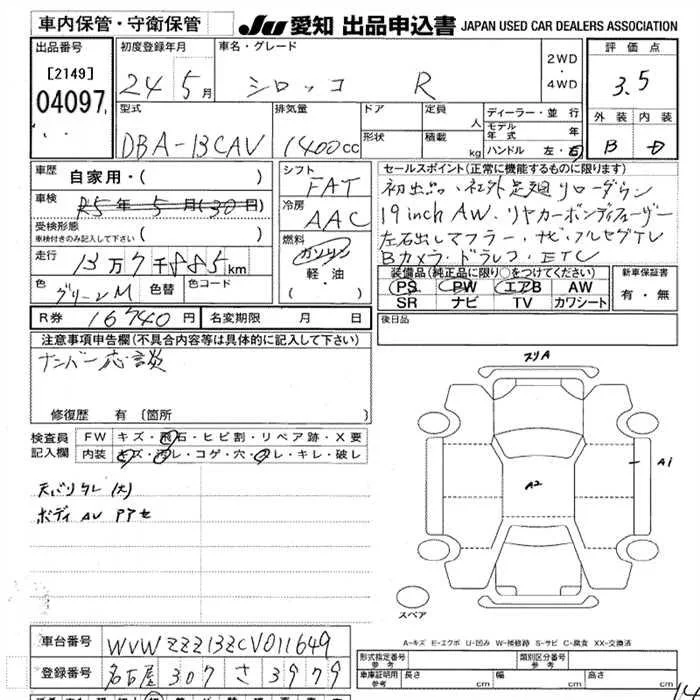 車内保管・守衛保管
JU 愛知 出品申込書 JAPAN USED CAR DEALERS ASSOCIATION
出品番号
[2149]
04097
初度登録年月
24 5月
車名・グレード
シロッコ R
2WD
・
4WD
評価点
3.5
外装 内装
B D
型式
DBA-13CAV
排気量
1400cc
ドア
形状
定員 人
積載 kg
ディーラー・並行
モデル年式 年
ハンドル 左・右
車歴
自家用・( )
車検
R5年5月(30日)
受検形態
※検付きのみ記入して下さい ( )
走行
13万7千885km
色
グリーンM
色替
色コード
シフト
FAT
冷房
AAC
燃料
ガソリン
軽・油
( )
セールスポイント(正常に機能するものに限ります)
初出品・社外足廻りローダウン
19inch AW・リヤカーボンディフューザー
左右出しマフラー・ナビ・フルセグTV
Bカメラ・ドラレコ・ETC
装備品(純正品に限り○をつけてください)
PS PW エアB AW
SR ナビ TV カワシート
新車保証書
有・無
R券 16740円
名変期限 月 日
後日品
注意事項申告欄(不具合内容等は具体的に記入して下さい)
ナンバー応談
修復歴 有〔箇所
検査員
記入欄
FW キズ・飛石・ヒビ割・リペア跡・X要
内装 キズ・汚レ・コゲ・穴・スレ・キレ・破レ
天バリタレ(大)
ボディ AU PPセ
スリA
A1
A2
スペア
A-キズ E-エクボ U-凹み W-補修跡 S-サビ C-腐食 XX-交換済
車台番号
WVWZZZ13ZCV011649
登録番号
名古屋 307 さ 3979
形式指定番号
参考
類別区分番号
参考
車庫証明用
参考
長さ cm
幅 cm
高さ cm